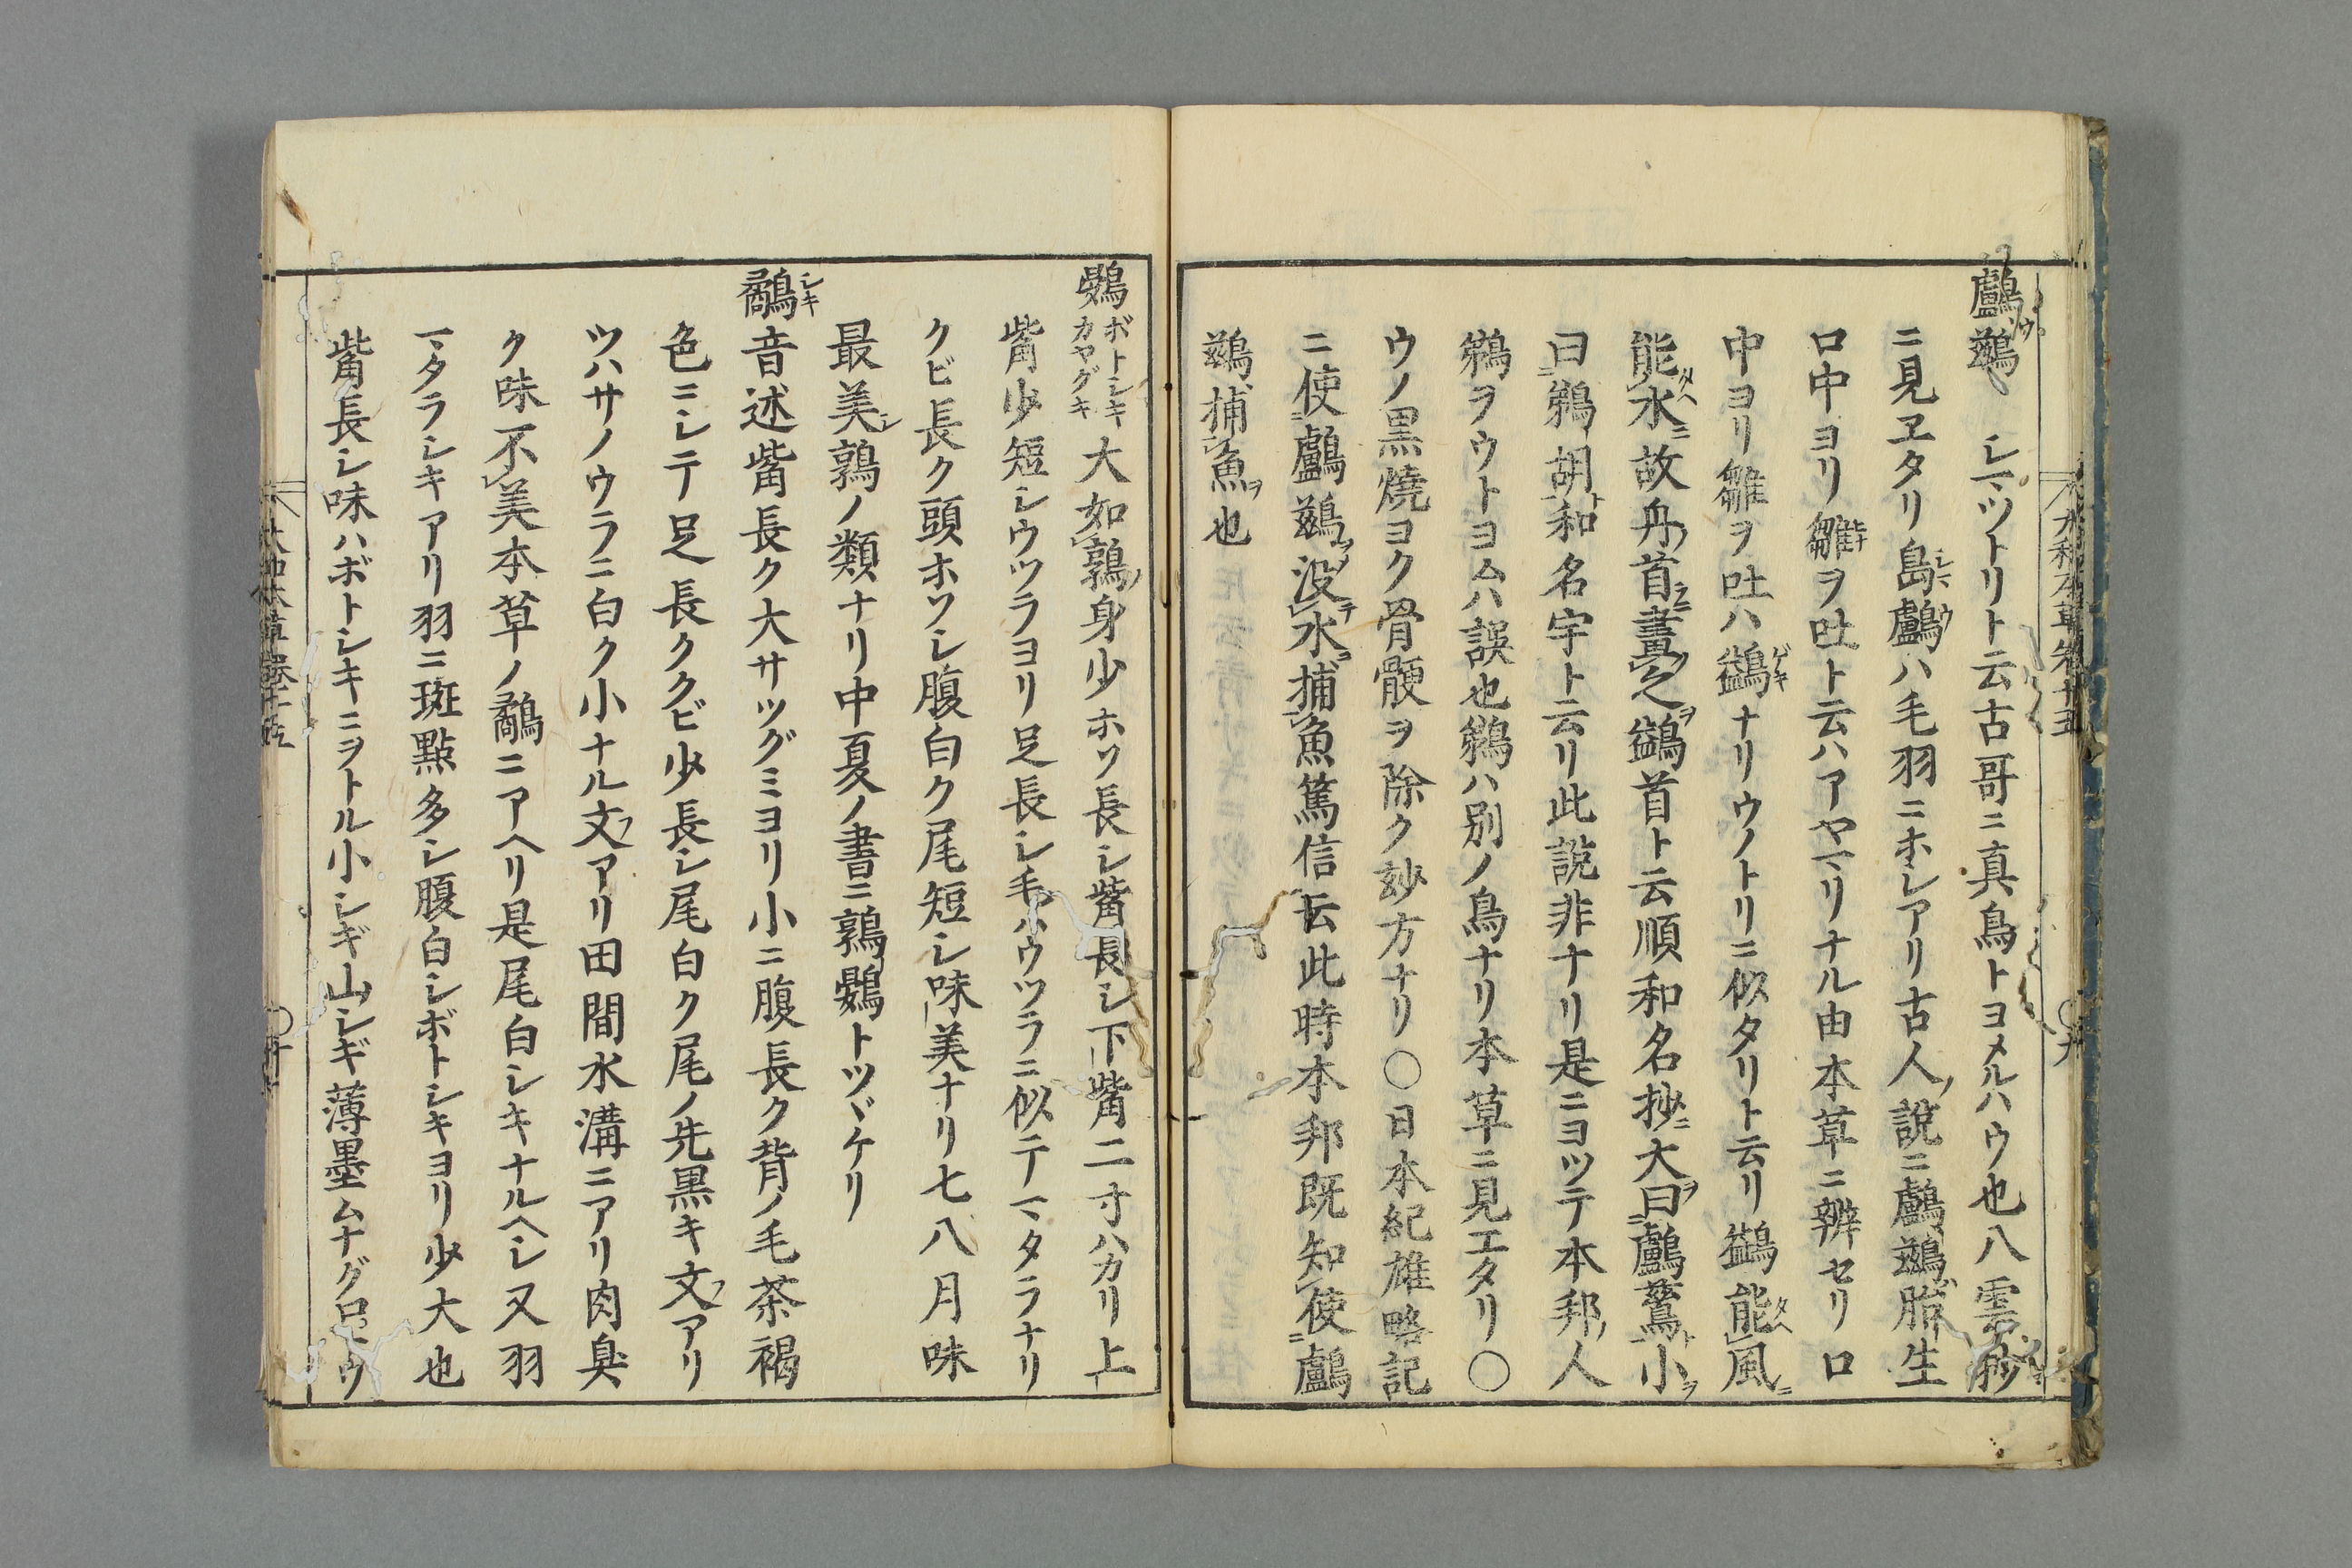 鸕鷀 シマツトリト云古哥ニ真鳥トヨメルハウ也八雲抄
ニ見ヱタリ島鸕ハ毛羽ニホシアリ古人ノ説ニ鸕鷀胎生
口中ヨリ雛ヲ吐ト云ハアヤマリナル由本草ニ辨セリ口
中ヨリ雛ヲ吐ハ鷁ナリウノトリニ似タリト云リ鷁能風ニ
能水ニ故舟首ニ畫之ヲ鷁首ト云順和名抄ニ大ヲ曰鸕鷀ト小ヲ
曰鵜胡ト和名宇ト云リ此説非ナリ是ニヨツテ本邦ノ人
鵜ヲウトヨムハ誤也鵜ハ別ノ鳥ナリ本草ニ見エタリ〇
ウノ黒焼ヨク骨骾ヲ除ク妙方ナリ〇日本紀雄略記
ニ使鸕鷀没水捕魚篤信云此時本邦既知使鸕
鷀捕魚ヲ也
鷃 ボトシキ カヤグキ 大如鶉身少ホソ長シ觜長シ下觜二寸ハカリ上
觜少短シウツラヨリ足長シ毛ハウツラニ似テマタラナリ
クビ長ク頭ホソシ腹白ク尾短シ味美ナリ七八月味
最美シ鶉ノ類ナリ中夏ノ書ニ鶉鷃トツヾケリ
鷸 シキ 音述觜長ク大サツグミヨリ小ニ腹長ク背ノ毛茶褐
色ニシテ足長ククビ少長シ尾白ク尾ノ先黒キ文アリ
ツハサノウラニ白ク小ナル文アリ田間水溝ニアリ肉臭
ク味不美本草ノ鷸ニアヘリ是尾白シキナルヘシ又羽
マタラシキアリ羽ニ斑點多シ腹白シボトシキヨリ少大也
觜長シ味ハボトシキニヲトル小シギ山シギ薄墨ムナグロ